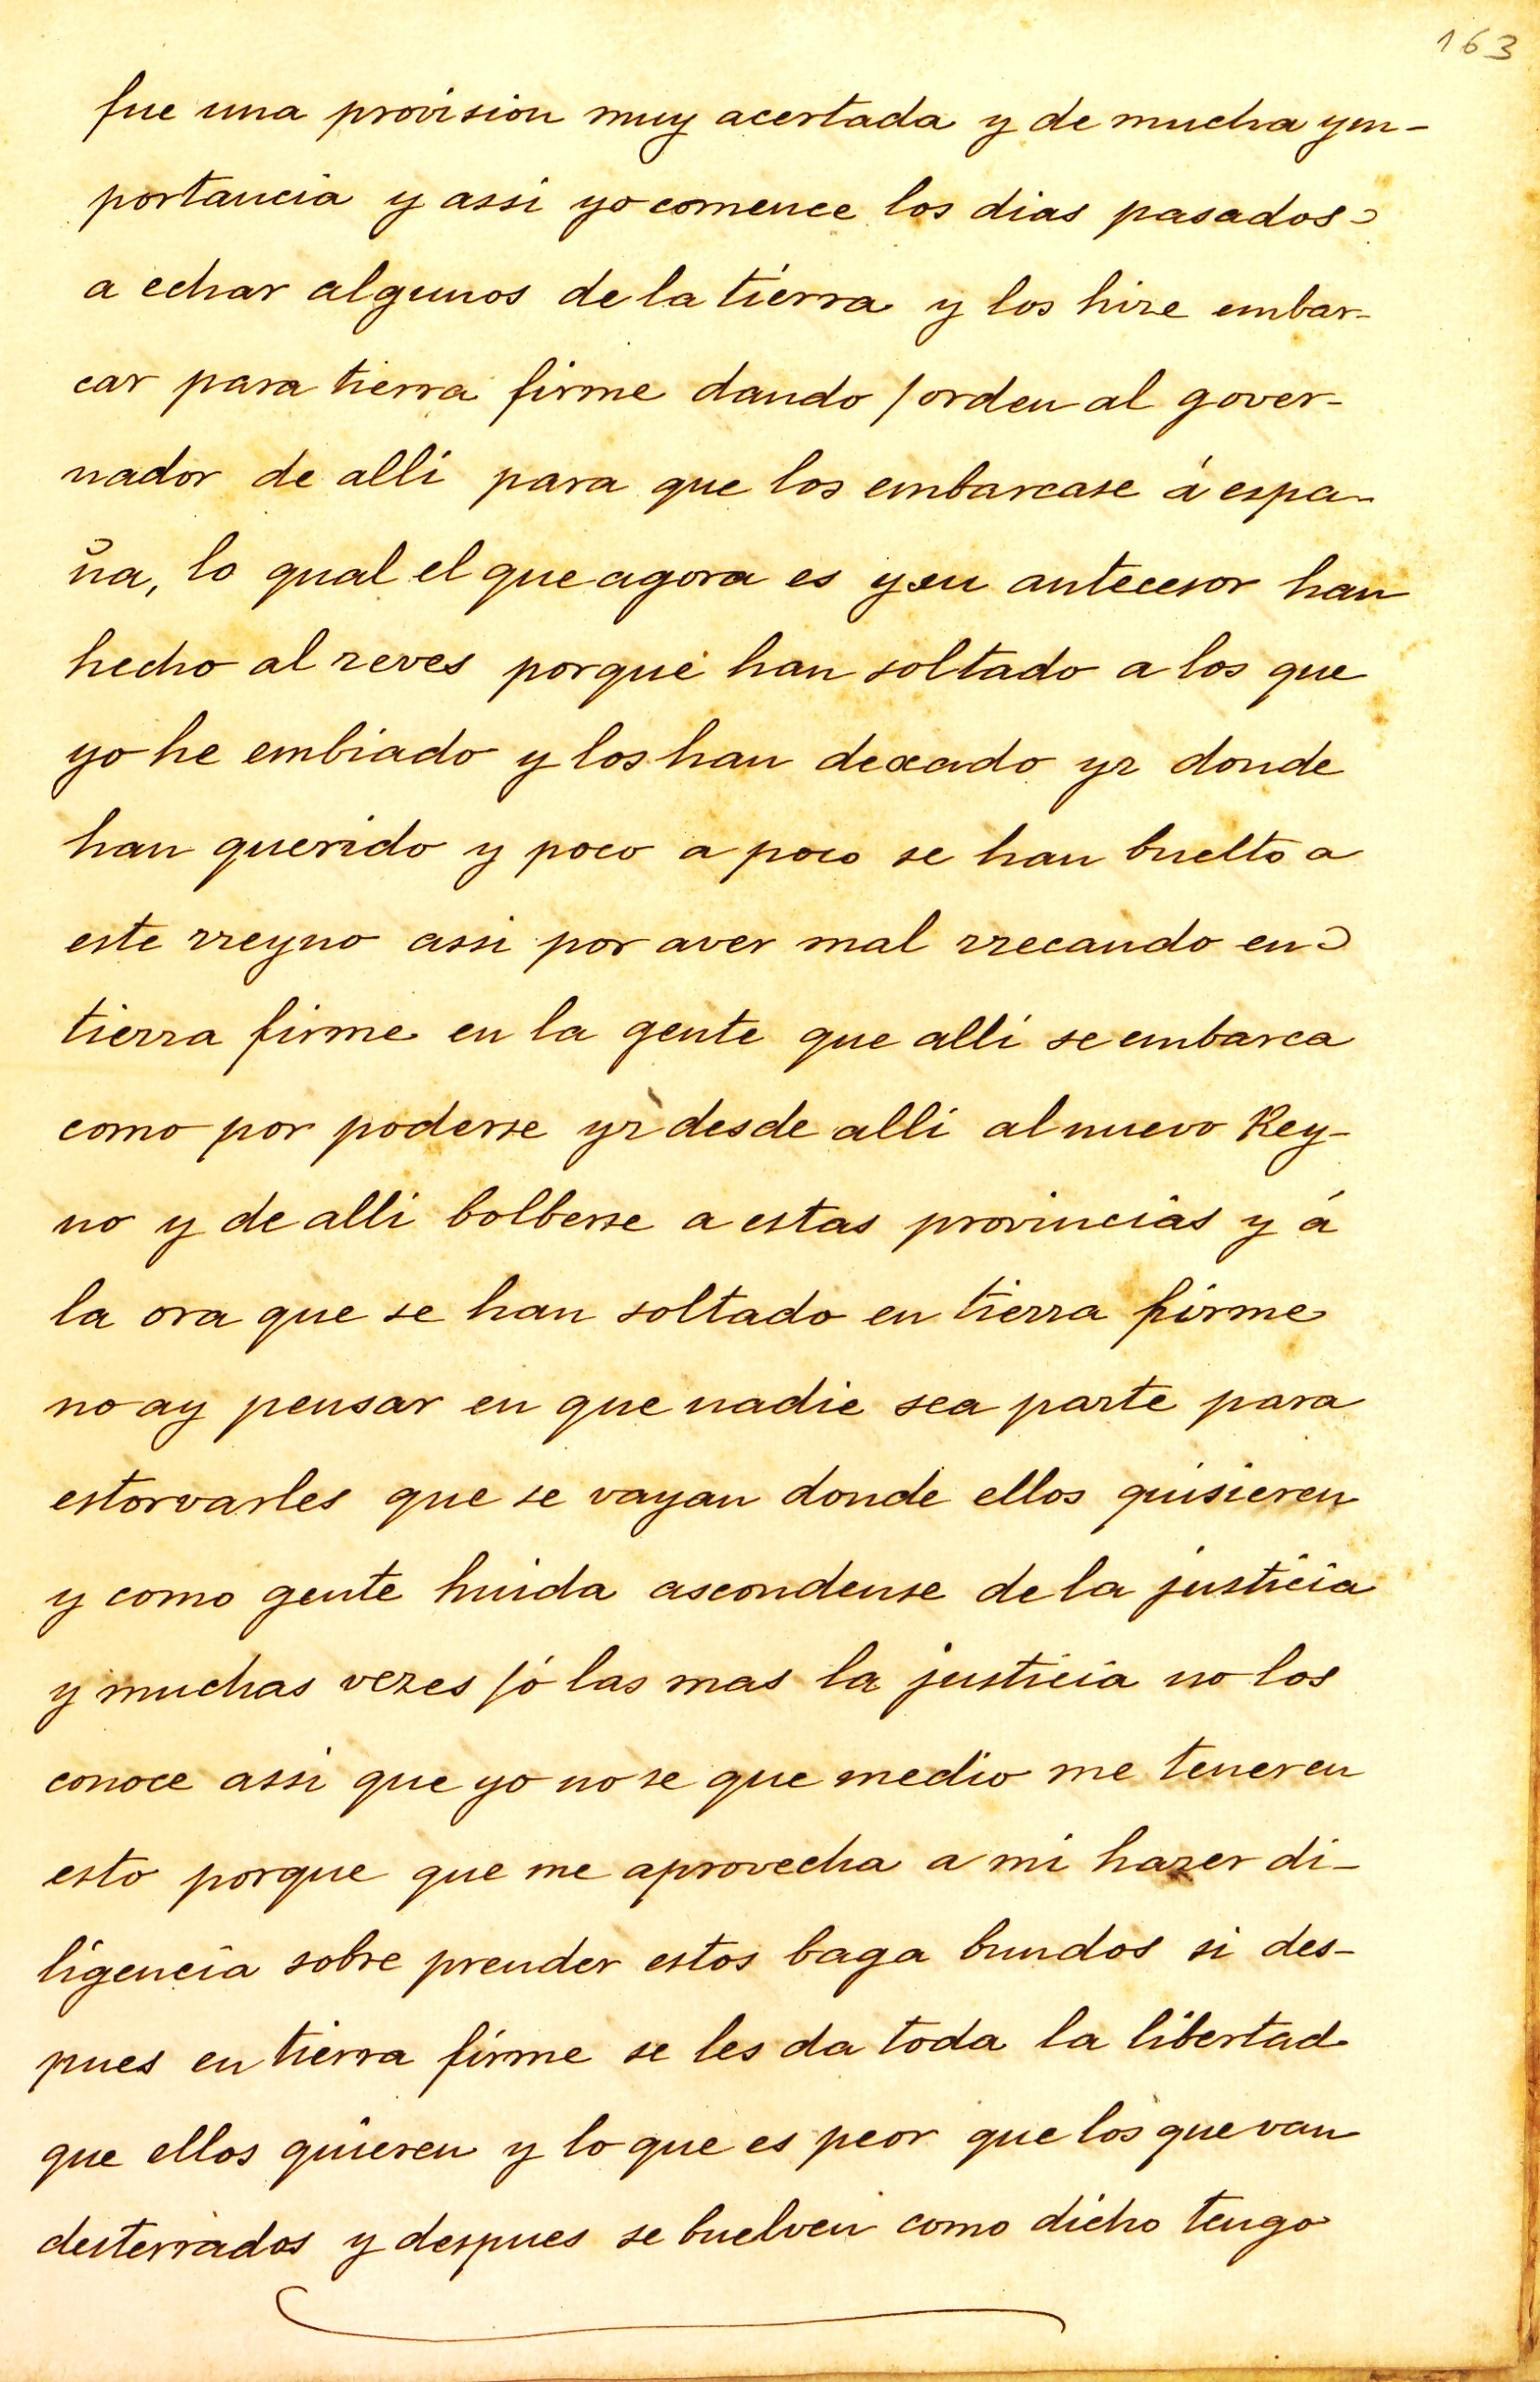 163
fue una provision muy acertada y de mucha ym-
portancia y assi yo comence los dias pasados
a echar algunos de la tierra y los hize embar-
car para tierra firme dando /orden al gover-
nador de alli para que los embarcase á espa-
ña, lo qual el que agora es y su antecesor han
hecho al reves porque han soltado a los que
yo he embiado y los han dexado yr donde
han querido y poco a poco se han buelto a
este rreyno assi por aver mal rrecaudo en
tierra firme en la gente que alli se embarca
como por poderse yr desde alli al nuevo Rey-
no y de alli bolberse a estas provincias y á
la ora que se han soltado en tierra firme
no ay pensar en que nadie sea parte para
estorvarles que se vayan donde ellos quisieren
y como gente huida ascondense de la justicia
y muchas vezes /ó las mas la justicia no los
conoce assi que yo no se que medio me tener en
esto porque que me aprovecha a mi hazer di-
ligencia sobre prender estos baga bundos si des-
pues en tierra firme se les da toda la libertad
que ellos quieren y lo que es peor que los que van
desterrados y despues se buelven como dicho tengo